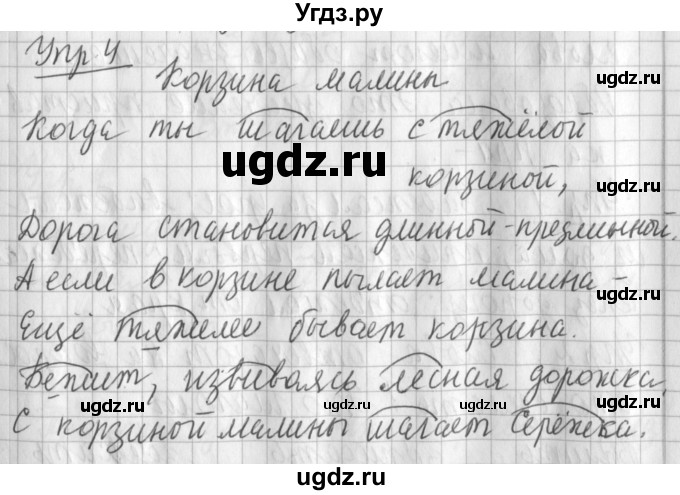 Угдз.ру
Упр 4
Корзина малины
Когда ты шагаешь с тяжёлой
корзиной,
Дорога становится длинной-предлинной.
А если в корзине пылает малина -
Ещё тяжелее бывает корзина.
Бежит, извиваясь лесная дорожка,
С корзиной малины шагает Серёжка.
ugdz.ru
ugdz.ru
ugdz.ru
ugdz.ru
ugdz.ru
ugdz.ru
ugdz.ru
ugdz.ru
ugdz.ru
ugdz.ru